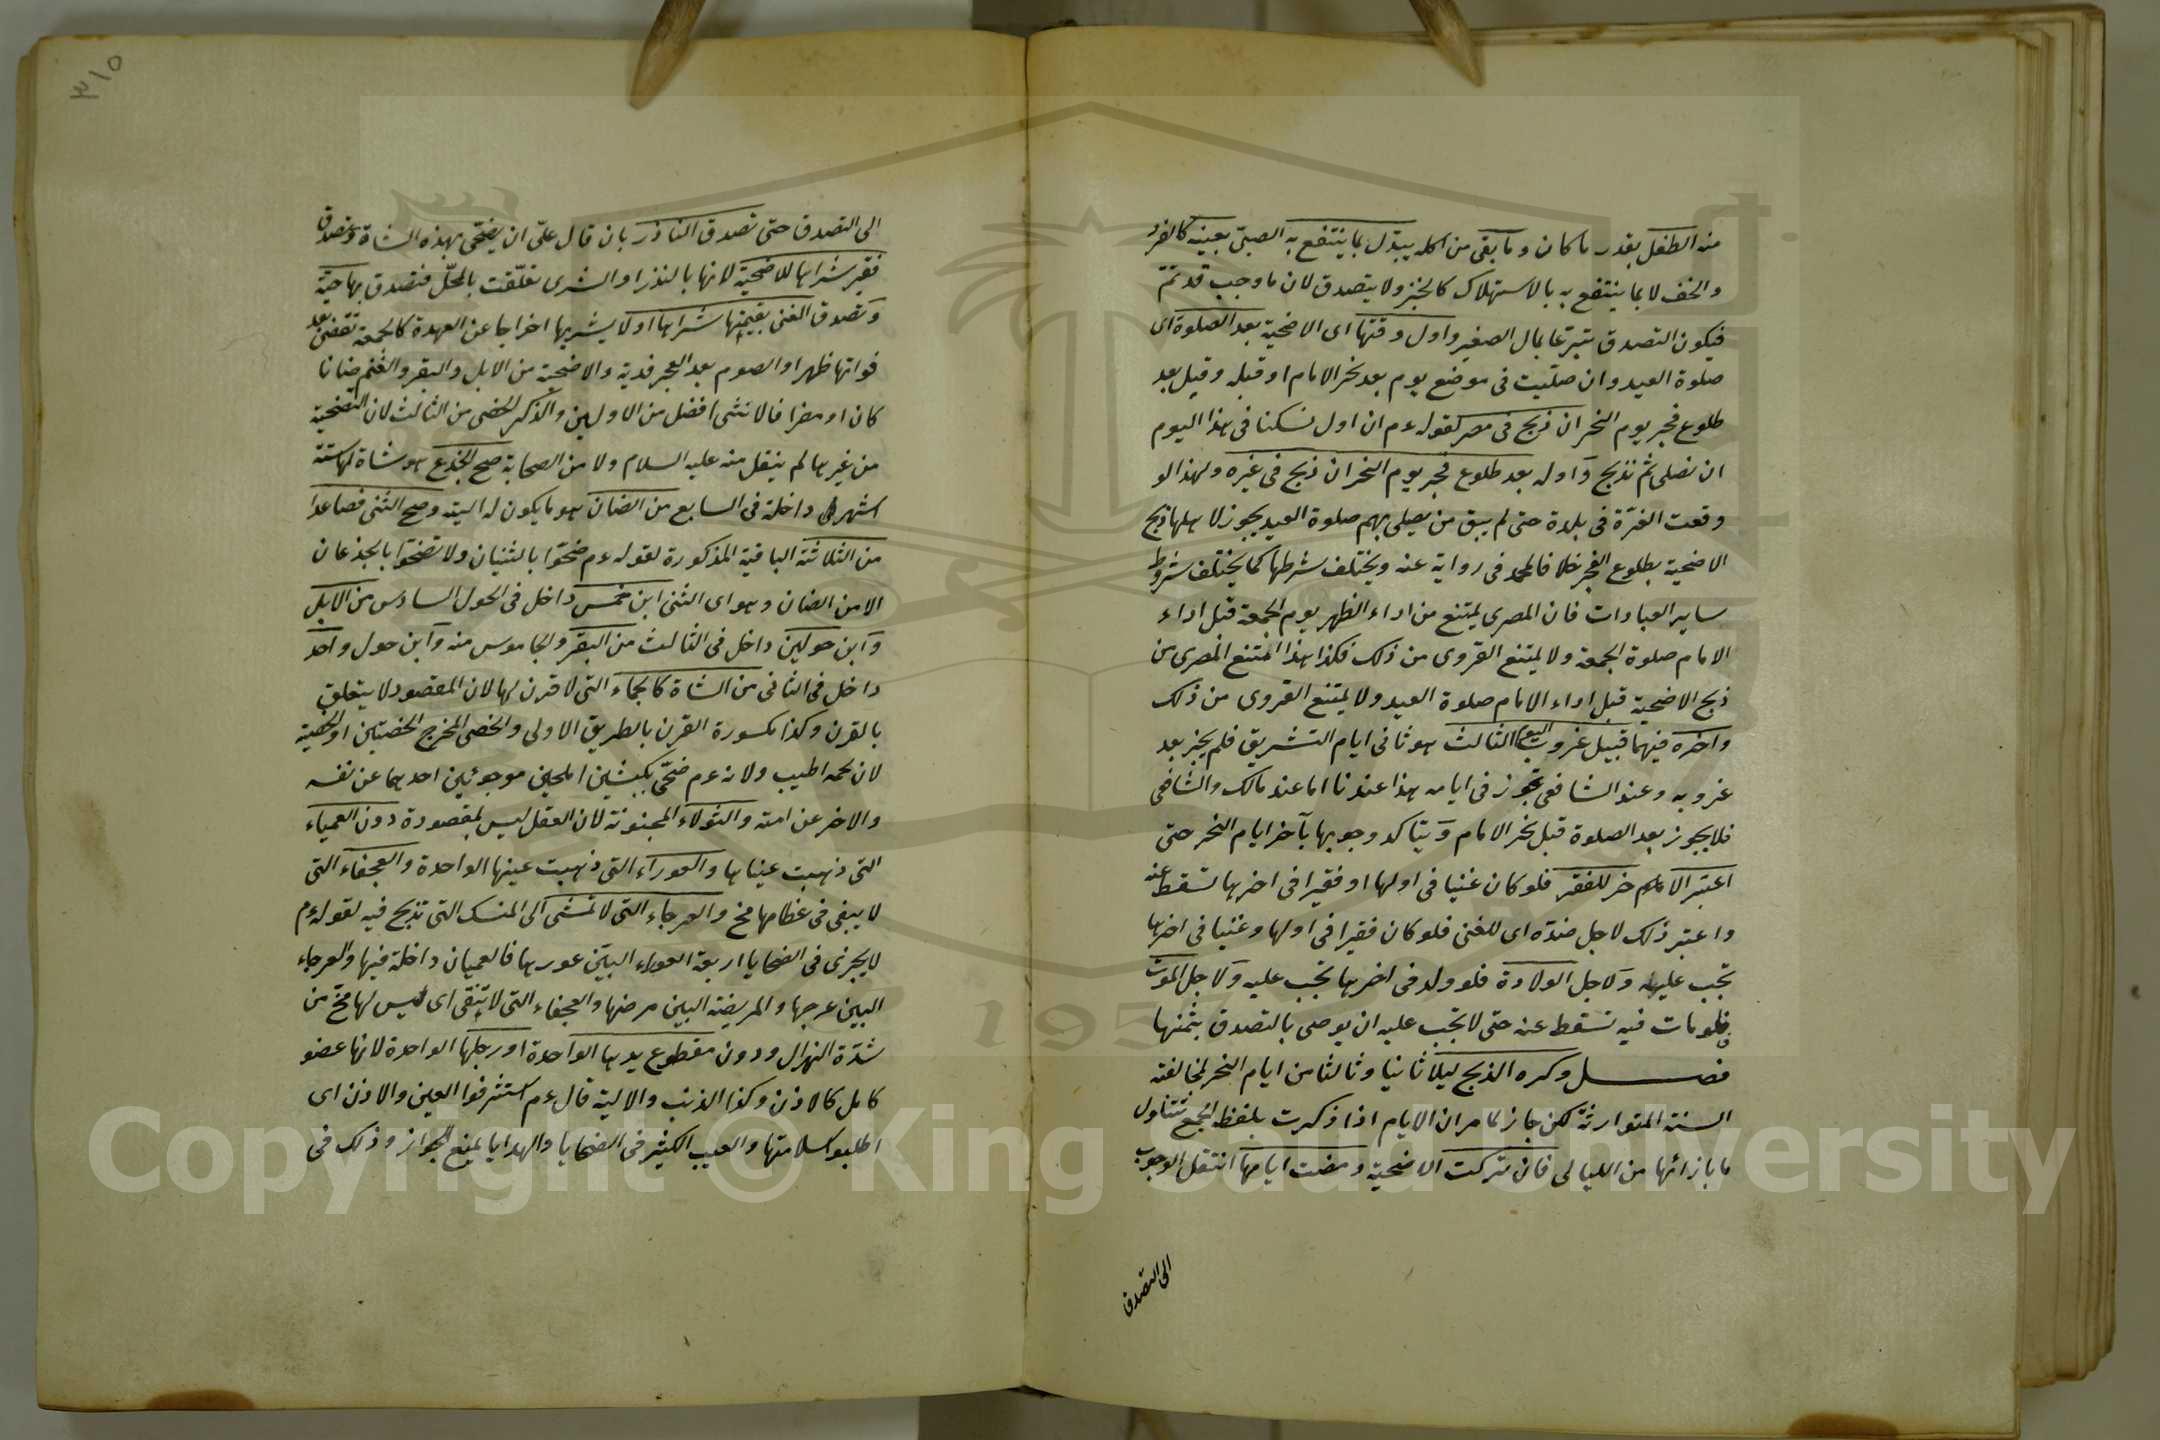 منه الطفل بقدر ما كان وما بقى من اكله يبدل بما ينتفع به الصبى بعينه كالفرو
والخف لا بما ينتفع به بالاستهلاك كالخبز ولا يتصدق لان ما وجب قد تم
فيكون التصدق تبرعا بمال الصغير واول وقتها اى الاضحية بعد الصلوة اى
صلوة العيد وان صليت فى موضع يوم بعد نحر الامام او قبله وقيل بعد
طلوع فجر يوم النحر ان ذبح فى مصر لقوله ءم ان اول نسكنا فى هذا اليوم
ان نصلى ثم نذبح واوله بعد طلوع فجر يوم النحر ان ذبح فى غيره ولهذا لو
وقعت الفترة فى بلدة حتى لم يبق من يصلى بهم صلوة العيد يجوز لاهلها ذبح
الاضحية بطلوع الفجر خلافا لمحمد فى رواية عنه ويختلف شرطها كما يختلف شروط
ساير العبادات فان المصرى يمتنع من اداء الظهر يوم الجمعة قبل اداء
الامام صلوة الجمعة ولا يمتنع القروى من ذلك فكذا هذا امتنع المصرى من
ذبح الاضحية قبل اداء الامام صلوة العيد ولا يمتنع القروى من ذلك
واخره فيهما قبيل غروب اليوم الثالث هو ثانى ايام التشريق فلم يجز بعد
غروبه وعند الشافعى تجوز فى ايامه هذا عندنا اما عند مالك والشافعى
فلا يجوز بعد الصلوة قبل نحر الامام ويتاكد وجوبها بآخر ايام النحر حتى
اعتبر الاخر للفقر فلو كان غنيا فى اولها او فقيرا فى اخرها تسقط عنه
واعتبر ذلك لاجل ضده اى للغنى فلو كان فقيرا فى اولها وغنيا فى اخرها
تجب عليه ولاجل الولادة فلو ولد فى اخرها تجب عليه ولاجل الموت
فلو مات فيه تسقط عنه حتى لا تجب عليه ان يوصى بالتصدق بثمنها
فصل وكره الذبح ليلا ثانيا وثالثا من ايام النحر لمخالفته
السنة المتوارثة لكن جاز لما مر ان الايام اذا ذكرت بلفظ الجمع تتناول
ما بازائها من الليالى فان تركت الاضحية ومضت ايامها انتقل الوجوب
الى التصدق
٣١٥
الى التصدق حتى تصدق الناذر بان قال على ان يضحى بهذه الشاة وتصدق
فقير شراها للاضحية لانها بالنذر او الشرى تعلقت بالمحل فتصدق بها حية
وتصدق الغنى بقيمتها شراها او لا يشريها اخراجا عن العهدة كالجمعة تقضى بعد
فواتها ظهرا والصوم بعد العجز فدية والاضحية من الابل والبقر والغنم ضانا
كان او معزا فالانثى افضل من الاولين والذكر الخصى من الثالث لان التضحية
من غيرها لم ينقل منه عليه السلام ولا من الصحابة صح الجذع هو شاة لها ستة
اشهر داخلة فى السابع من الضان هو ما يكون له الية وصح الثنى فصاعدا
من الثلاثة الباقية المذكورة لقوله ءم ضحوا بالثنيان ولا تضحوا بالجذعان
الا من الضان وهو اى الثنى ابن خمس داخل فى الحول السادس من الابل
وابن حولين داخل فى الثالث من البقر والجاموس منه وابن حول واحد
داخل فى الثانى من الشاة كالجماء التى لا قرن لها لان المقصود لا يتعلق
بالقرن وكذا مكسورة القرن بالطريق الاولى والخصى المخرج الخصيتين او الخصية
لان لحمه اطيب ولانه ءم ضحى بكبشين املحين موجوئين احدهما عن نفسه
والاخر عن امته والثولاء المجنونة لان العقل ليس بمقصودة دون العمياء
التى ذهبت عيناها والعوراء التى ذهبت عينها الواحدة والعجفاء التى
لا يبقى فى عظامها مخ والعرجاء التى لا تمشى الى المنسك التى تذبح فيه لقوله ءم
لا يجزى فى الضحايا اربعة العوراء البين عورها فالعميان داخلة فيها والعرجاء
البين عرجها والمريضة البين مرضها والعجفاء التى لا تنقى اى ليس لها مخ من
شدة الهزال ودون مقطوع يدها الواحدة او رجلها الواحدة لانها عضو
كامل كالاذن وكذا الذنب والالية قال ءم استشرفوا العين والاذن اى
اطلبوا سلامتها والعيب الكثير فى الضحايا والهدايا يمنع الجواز وذلك فى
Copyright © King Saud University